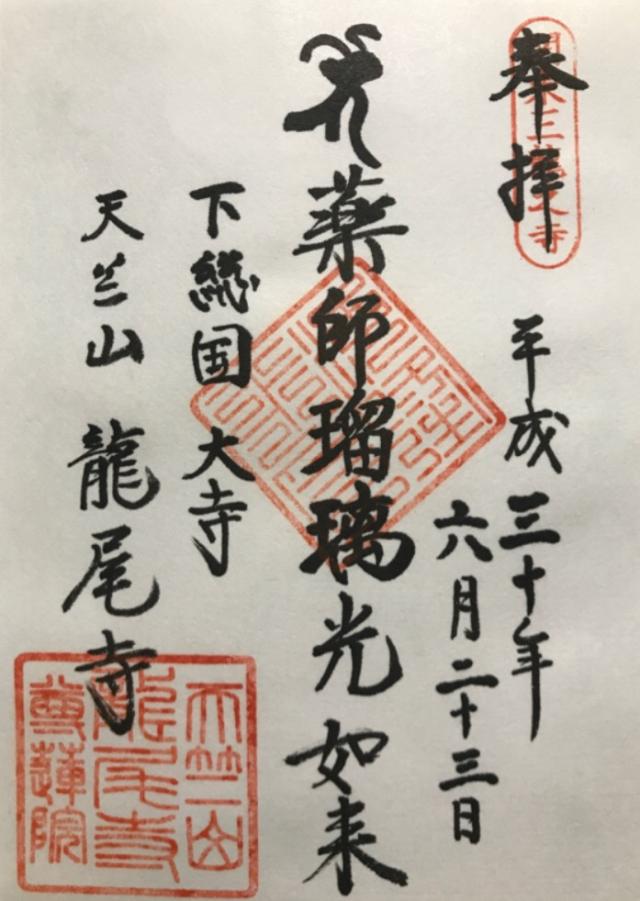 奉拝
平成三十年
六月二十三日
薬師瑠璃光如来
下総国 大寺
天竺山 龍尾寺
天竺山
龍尾寺
尊蓮院